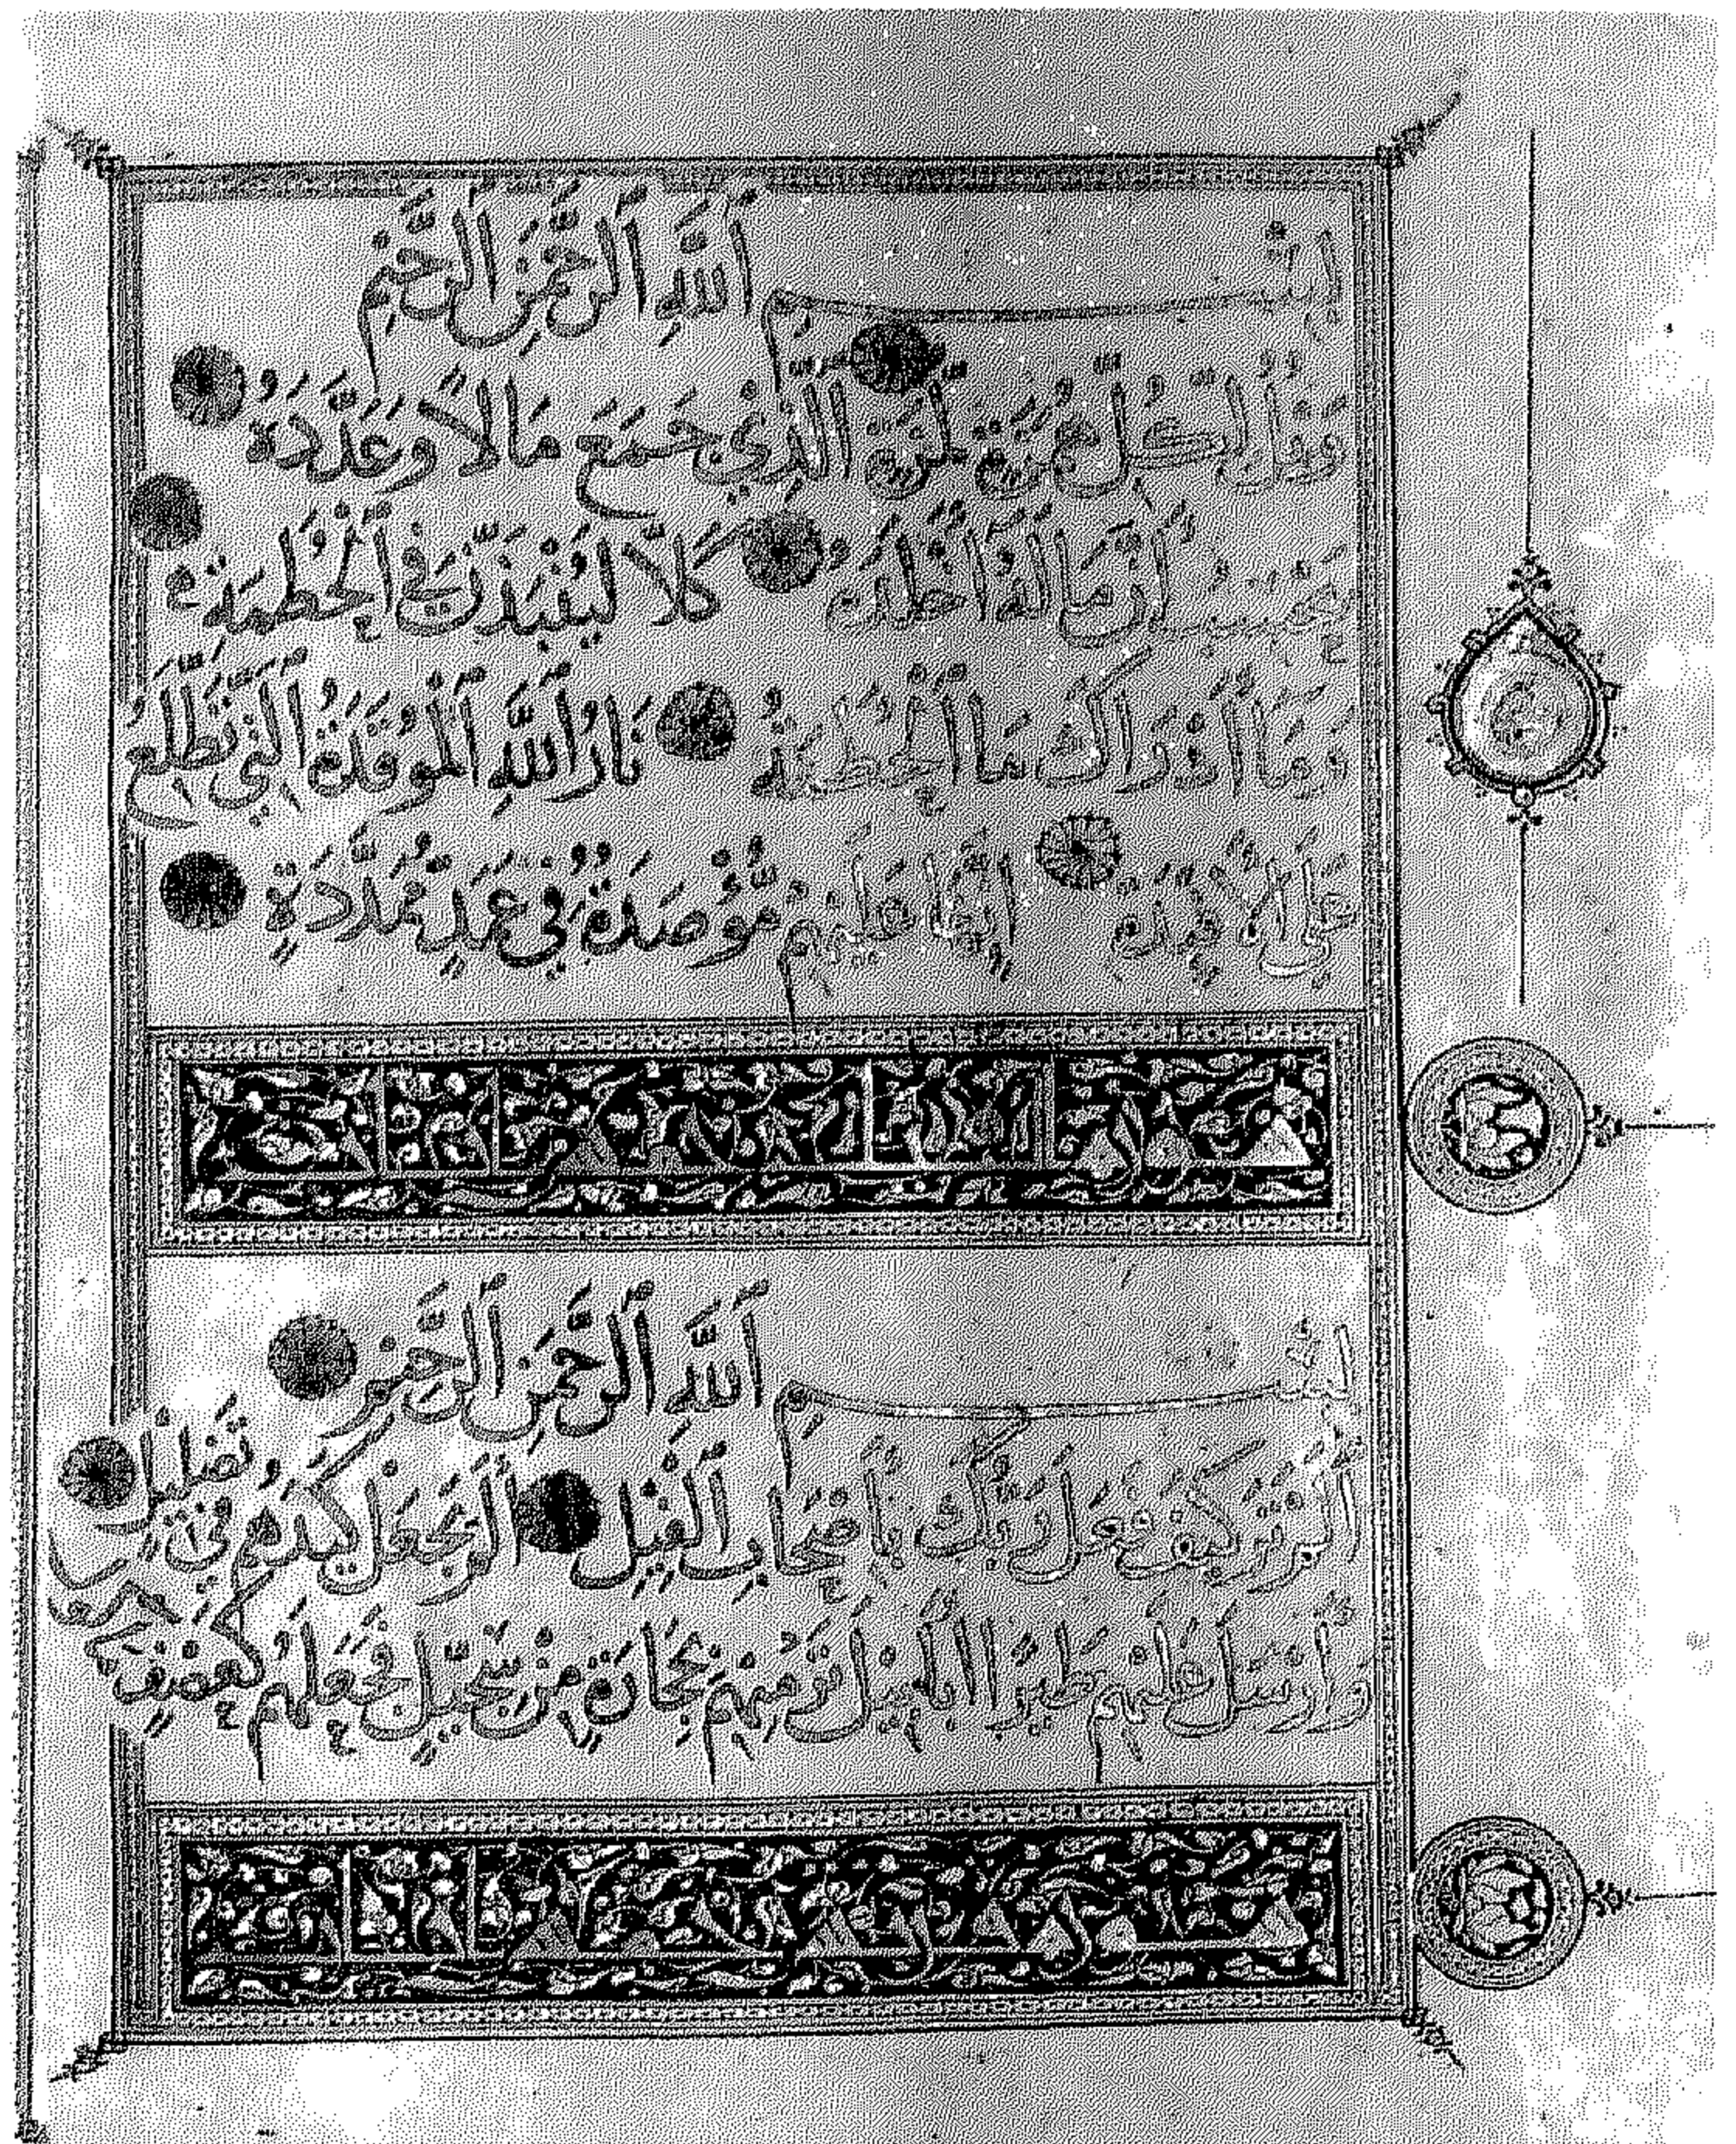 بِسْمِ اللَّهِ الرَّحْمَنِ الرَّحِيمِ
وَيْلٌ لِكُلِّ هُمَزَةٍ لُمَزَةٍ الَّذِي جَمَعَ مَالًا وَعَدَّدَهُ
يَحْسَبُ أَنَّ مَالَهُ أَخْلَدَهُ كَلَّا لَيُنْبَذَنَّ فِي الْحُطَمَةِ
وَمَا أَدْرَاكَ مَا الْحُطَمَةُ نَارُ اللَّهِ الْمُوقَدَةُ الَّتِي تَطَّلِعُ
عَلَى الْأَفْئِدَةِ إِنَّهَا عَلَيْهِمْ مُؤْصَدَةٌ فِي عَمَدٍ مُمَدَّدَةٍ
بِسْمِ اللَّهِ الرَّحْمَنِ الرَّحِيمِ
أَلَمْ تَرَ كَيْفَ فَعَلَ رَبُّكَ بِأَصْحَابِ الْفِيلِ أَلَمْ يَجْعَلْ كَيْدَهُمْ فِي تَضْلِيلٍ
وَأَرْسَلَ عَلَيْهِمْ طَيْرًا أَبَابِيلَ تَرْمِيهِمْ بِحِجَارَةٍ مِنْ سِجِّيلٍ فَجَعَلَهُمْ كَعَصْفٍ